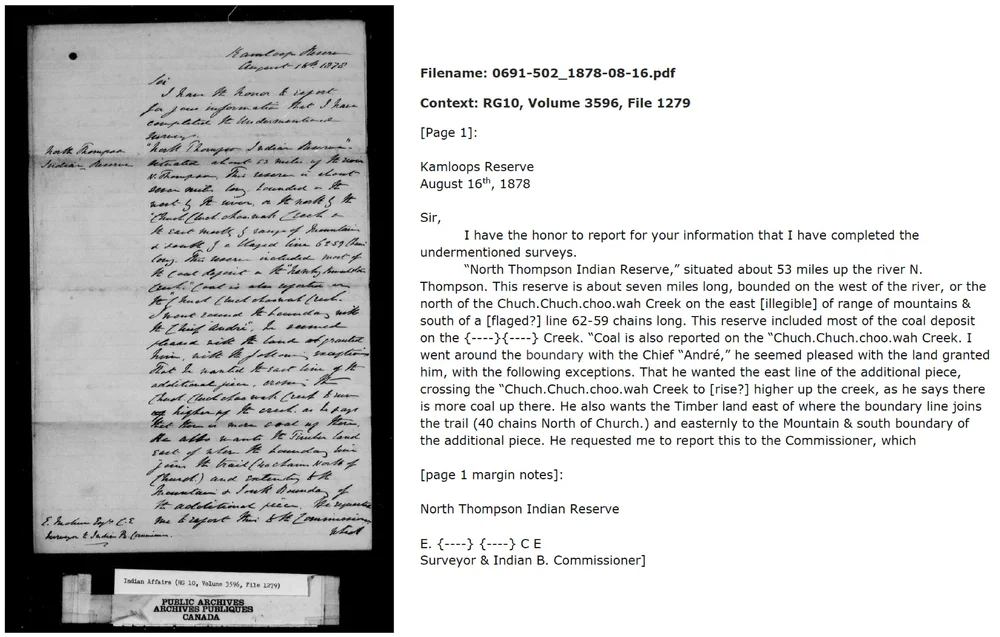 Kamloops Reserve
August 16th 1878
Sir
I have the honor to report
for your information that I have
completed the undermentioned
surveys.
North Thompson
Indian Reserve
"North Thompson Indian Reserve"
situated about 53 miles up the river
N. Thompson. This reserve is about
seven miles long bounded on the
west by the river, on the north by the
Chuch Chuch choo wah Creek on
the east by range of mountains
& south by a blazed line 62.59 chains
long. This reserve included most of
the coal deposit on the
Creek. "Coal is also reported on
the "Chuch Chuch choo wah Creek.
I went round the boundary with
the Chief "André", he seemed
pleased with the land granted
him, with the following exceptions
that he wanted the east line of the
additional piece, crossing the
Chuch Chuch choo wah Creek to run
higher up the creek, as he says
that there is more coal up there.
He also wants the Timber land
east of where the boundary line
joins the trail (40 chains North of
Church.) and extending to the
Mountain & South Boundary of
the additional piece. He requested
me to report this to the Commissioner
which
E. Mohun Esqre C.E
Surveyor to Indian Rs. Commission
Indian Affairs (RG 10, Volume 3596, File 1279)
PUBLIC ARCHIVES
ARCHIVES PUBLIQUES
CANADA
Filename: 0691-502_1878-08-16.pdf
Context: RG10, Volume 3596, File 1279
[Page 1]:
Kamloops Reserve
August 16th, 1878
Sir,
I have the honor to report for your information that I have completed the
undermentioned surveys.
“North Thompson Indian Reserve,” situated about 53 miles up the river N.
Thompson. This reserve is about seven miles long, bounded on the west of the river, or the
north of the Chuch.Chuch.choo.wah Creek on the east [illegible] of range of mountains &
south of a [flaged?] line 62-59 chains long. This reserve included most of the coal deposit
on the {----}{----} Creek. “Coal is also reported on the “Chuch.Chuch.choo.wah Creek. I
went around the boundary with the Chief “André,” he seemed pleased with the land granted
him, with the following exceptions. That he wanted the east line of the additional piece,
crossing the “Chuch.Chuch.choo.wah Creek to [rise?] higher up the creek, as he says there
is more coal up there. He also wants the Timber land east of where the boundary line joins
the trail (40 chains North of Church.) and easternly to the Mountain & south boundary of
the additional piece. He requested me to report this to the Commissioner, which
[page 1 margin notes]:
North Thompson Indian Reserve
E. {----} {----} C E
Surveyor & Indian B. Commissioner]